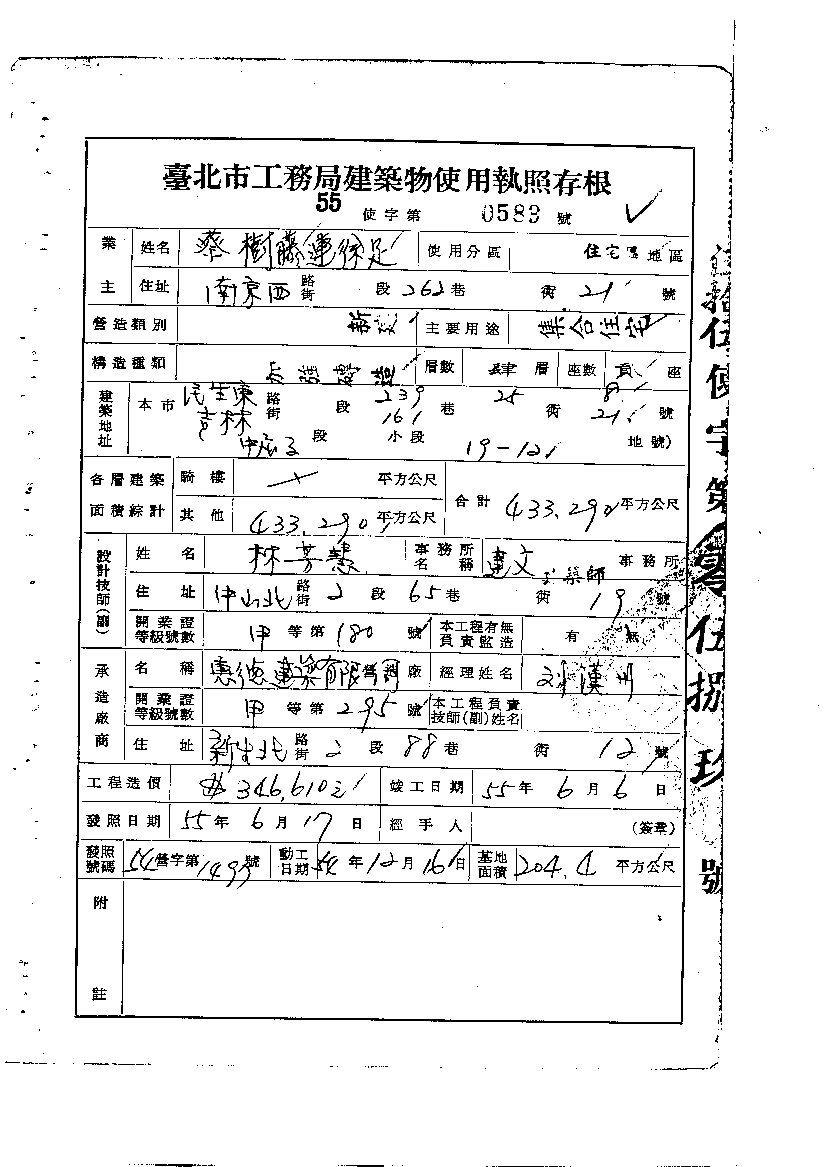 臺北市工務局建築物使用執照存根
55 使字第 0589 號
業主 姓名 蔡樹藤 連徐足 使用分區 住宅區 地區
住址 南京西 路街 段 262 巷 街 21 號
營造類別 新建 主要用途 集合住宅
構造種類 加強磚造 層數 肆 層 座數 貳 座
建築地址 本市 民生東 路街 段 239 巷 25 街 8 號
吉林 161 21
中庄子 段 小段 19-121 地號)
各層建築面積綜計 騎樓 平方公尺 合計 433.290 平方公尺
其他 433.290 平方公尺
設計技師(副) 姓名 林芳慧 事務所名稱 建文建築師 事務所
住址 中山北 路街 2 段 65 巷 街 19 號
開業證等級號數 甲 等第 180 號 本工程有無負責監造 有 無
承造廠商 名稱 惠德建築有限公司 營造廠 經理姓名 刘漢州
開業證等級號數 甲 等第 295 號 本工程負責技師(副)姓名
住址 新生北 路街 2 段 88 巷 街 12 號
工程造價 346,610元 竣工日期 55 年 6 月 6 日
發照日期 55 年 6 月 17 日 經手人 (簽章)
發照號碼 54 營字第 1499 號 動工日期 54 年 12 月 16 日 基地面積 204.4 平方公尺
附註
伍拾伍使字第零伍捌玖號